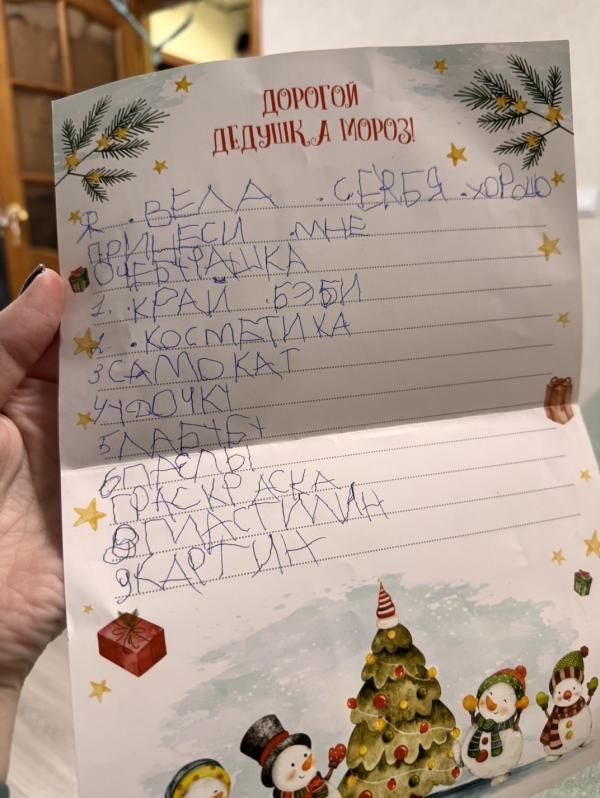 ДОРОГОЙ
ДЕДУШКА МОРОЗ!
Я . ВЕЛА . СЕРБЯ . ХОРОШО
ПРИНЕСИ . МНЕ
ОЧЕБУРАШКА
1. КРАЙ БЭБИ
2. КОСМЕТИКА
3 САМОКАТ
4 УДОЧКУ
5 ЛАБУБУ
6 ПАЗЛЫ
7 РАСКРАСКА
8 ПЛАСТИЛИН
9 КАРТИН